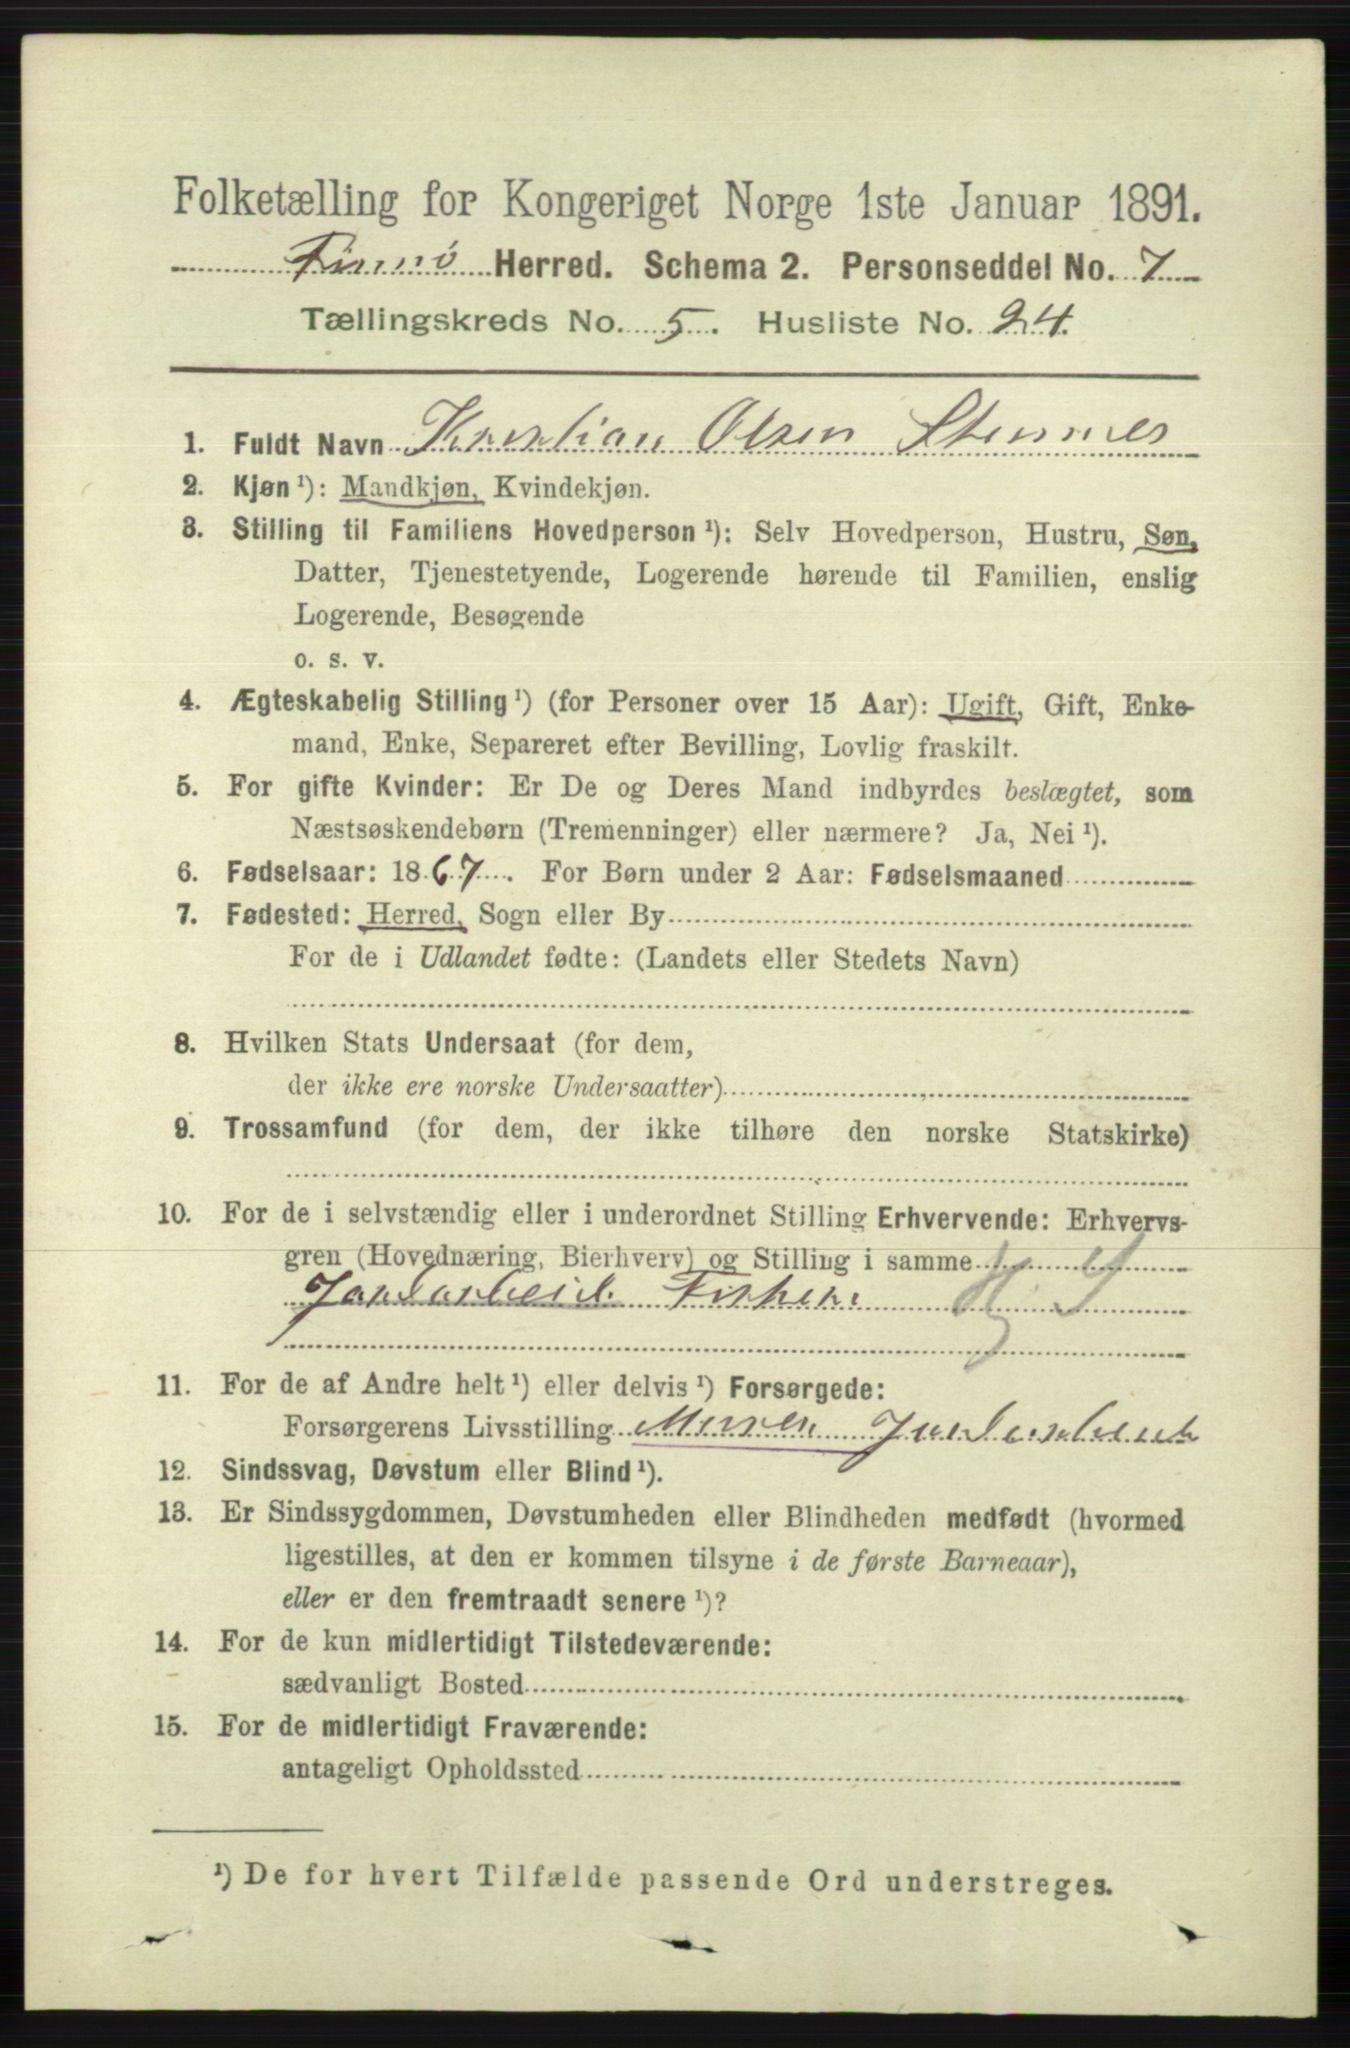 Folketælling for Kongeriget Norge 1ste Januar 1891.
Finnø Herred. Schema 2. Personseddel No. 7
Tællingskreds No. 5. Husliste No. 24.
1. Fuldt Navn Kristian Olsen Stennes
2. Kjøn ¹): Mandkjøn, Kvindekjøn.
3. Stilling til Familiens Hovedperson ¹): Selv Hovedperson, Hustru, Søn,
Datter, Tjenestetyende, Logerende hørende til Familien, enslig
Logerende, Besøgende
o. s. v.
4. Ægteskabelig Stilling ¹) (for Personer over 15 Aar): Ugift, Gift, Enke-
mand, Enke, Separeret efter Bevilling, Lovlig fraskilt.
5. For gifte Kvinder: Er De og Deres Mand indbyrdes beslægtet, som
Næstsøskendebørn (Tremenninger) eller nærmere? Ja, Nei ¹).
6. Fødselsaar: 1867. For Børn under 2 Aar: Fødselsmaaned
7. Fødested: Herred, Sogn eller By
For de i Udlandet fødte: (Landets eller Stedets Navn)
8. Hvilken Stats Undersaat (for dem,
der ikke ere norske Undersaatter)
9. Trossamfund (for dem, der ikke tilhøre den norske Statskirke)
10. For de i selvstændig eller i underordnet Stilling Erhvervende: Erhvervs-
gren (Hovednæring, Bierhverv) og Stilling i samme
Jordarbeid. Fiskeri
11. For de af Andre helt ¹) eller delvis ¹) Forsørgede:
Forsørgerens Livsstilling Jordarbeide
12. Sindssvag, Døvstum eller Blind ¹).
13. Er Sindssygdommen, Døvstumheden eller Blindheden medfødt (hvormed
ligestilles, at den er kommen tilsyne i de første Barneaar),
eller er den fremtraadt senere ¹)?
14. For de kun midlertidigt Tilstedeværende:
sædvanligt Bosted
15. For de midlertidigt Fraværende:
antageligt Opholdssted
¹) De for hvert Tilfælde passende Ord understreges.